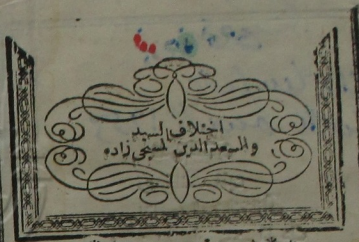 اختلاف لسيد
والسعد الدين لمسيحى زاده